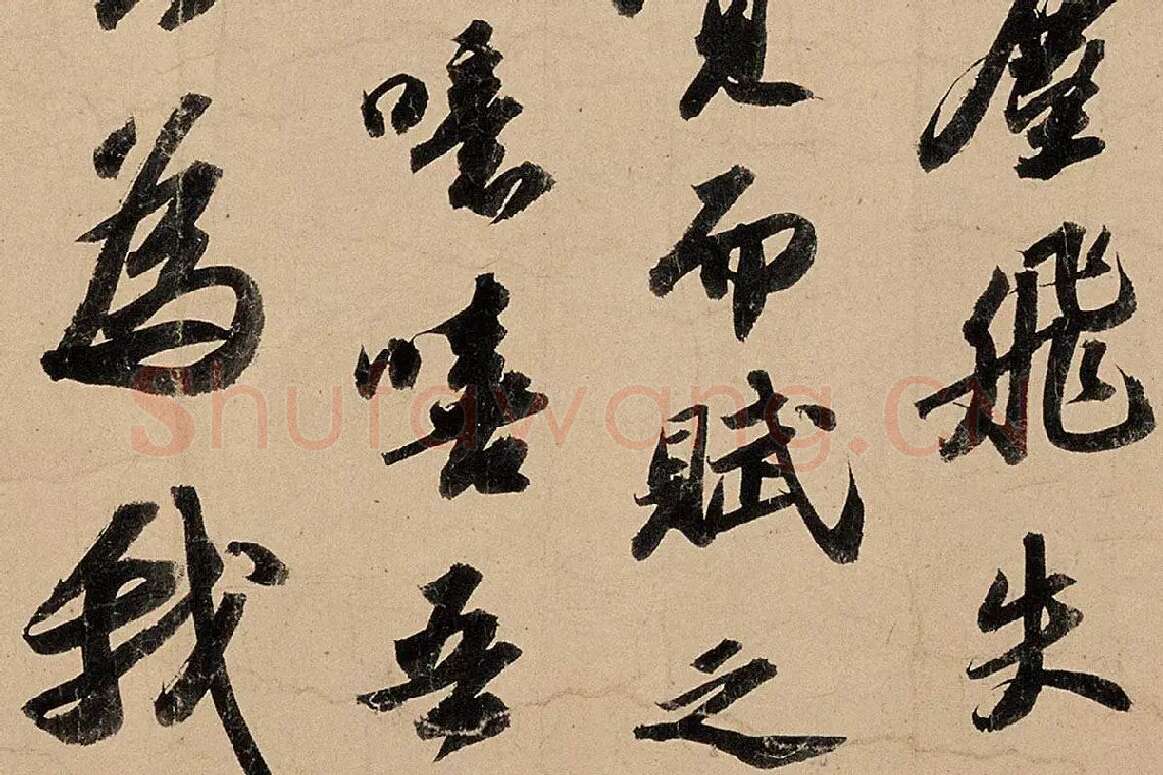 飛失
而賦之
噫嘻吾
為我
Shufawang.CN